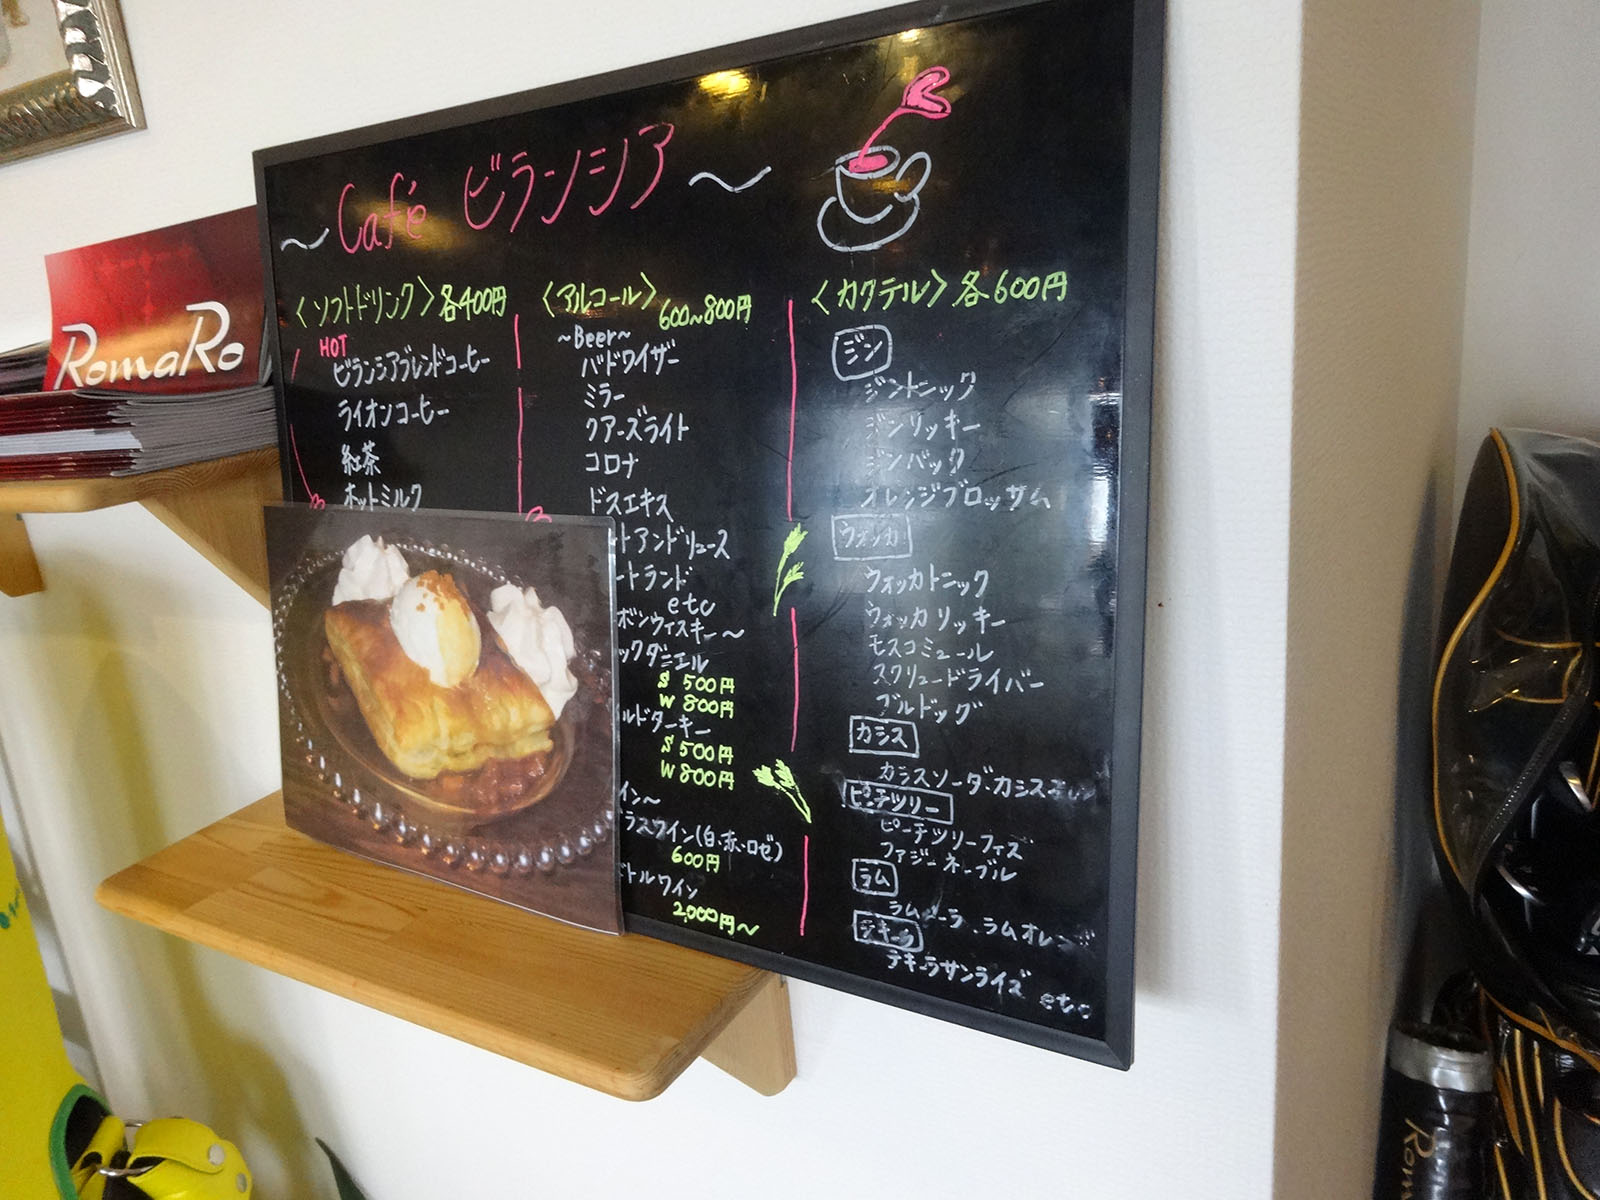 RomaRo
～Café ビランシア～
〈ソフトドリンク〉各400円
HOT
ビランシアブレンドコーヒー
ライオンコーヒー
紅茶
ホットミルク
〈アルコール〉
600~800円
~Beer~
バドワイザー
ミラー
クアーズライト
コロナ
ドスエキス
トアンドリュース
ートランド
etc
ボンウィスキー～
ックダニエル
S 500円
W 800円
ルドターキー
S 500円
W 800円
イン～
ラスワイン(白、赤、ロゼ)
600円
トルワイン
2,000円～
〈カクテル〉各600円
ジン
ジントニック
ジンリッキー
ジンバック
オレンジブロッサム
ウォッカ
ウォッカトニック
ウォッカリッキー
モスコミュール
スクリュードライバー
ブルドッグ
カシス
カシスソーダ、カシスオレンジ
ピーチツリー
ピーチツリーフィズ
ファジーネーブル
ラム
ラムコーラ、ラムオレンジ
テキーラ
テキーラサンライズ etc